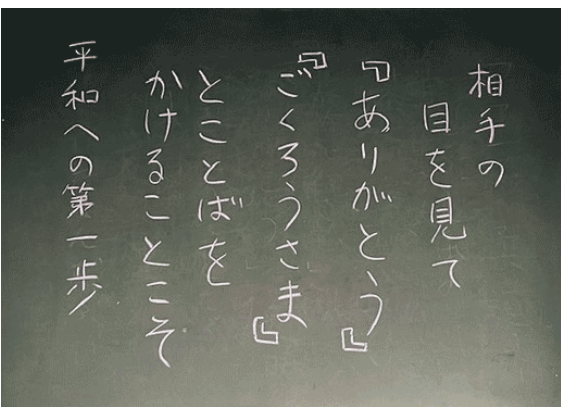 相手の
目を見て
『ありがとう』
『ごくろうさま』
とことばを
かけることこそ
平和への第一歩